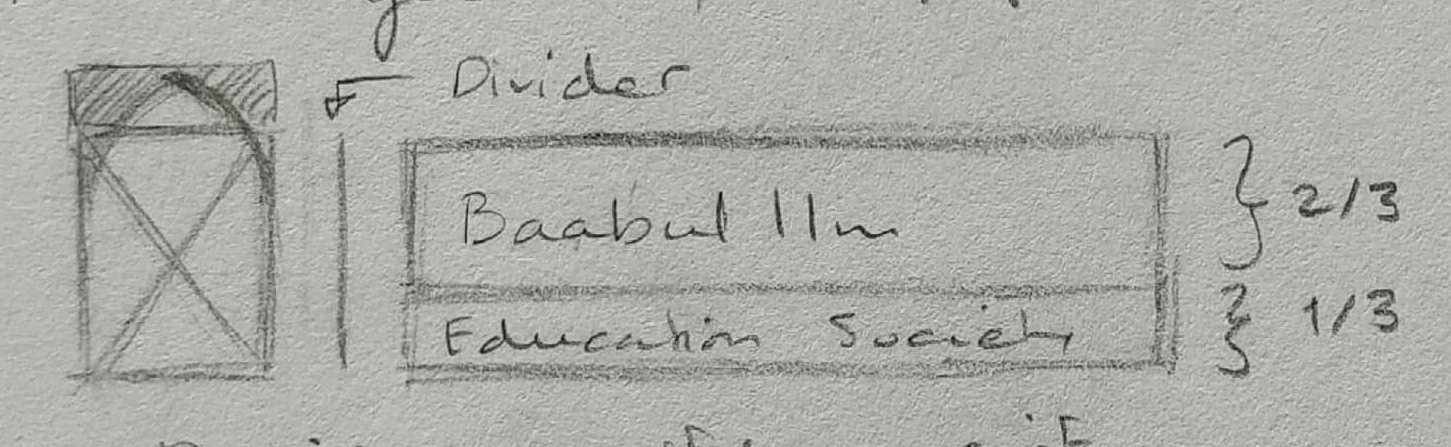 Divider
Baabul Ilm
2/3
Education Society
1/3